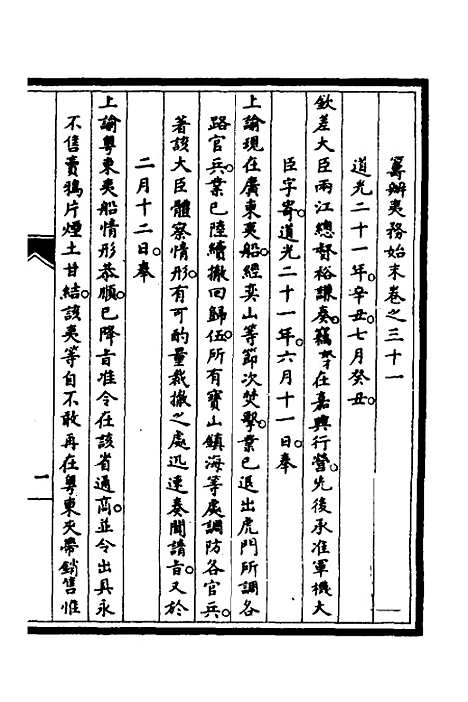 籌辦夷務始末卷之三十一
道光二十一年。辛丑。七月癸丑。
欽差大臣兩江總督裕謙奏。竊奴才在嘉興行營。先後承准軍機大
臣字寄。道光二十一年。六月十一日。奉
上諭。現在廣東夷船。經奕山等節次焚擊。業已退出虎門。所調各
路官兵。業已陸續撤回歸伍。所有寶山鎮海等處調防各官兵。
著該大臣體察情形。有可酌量裁撤之處。迅速奏聞請旨。又於
二月十二日。奉
上諭。粵東夷船情形恭順。已降旨准令在該省通商。並令出具永
不售賣鴉片煙土甘結。該夷等自不敢再在粵東夾帶銷售。惟
一